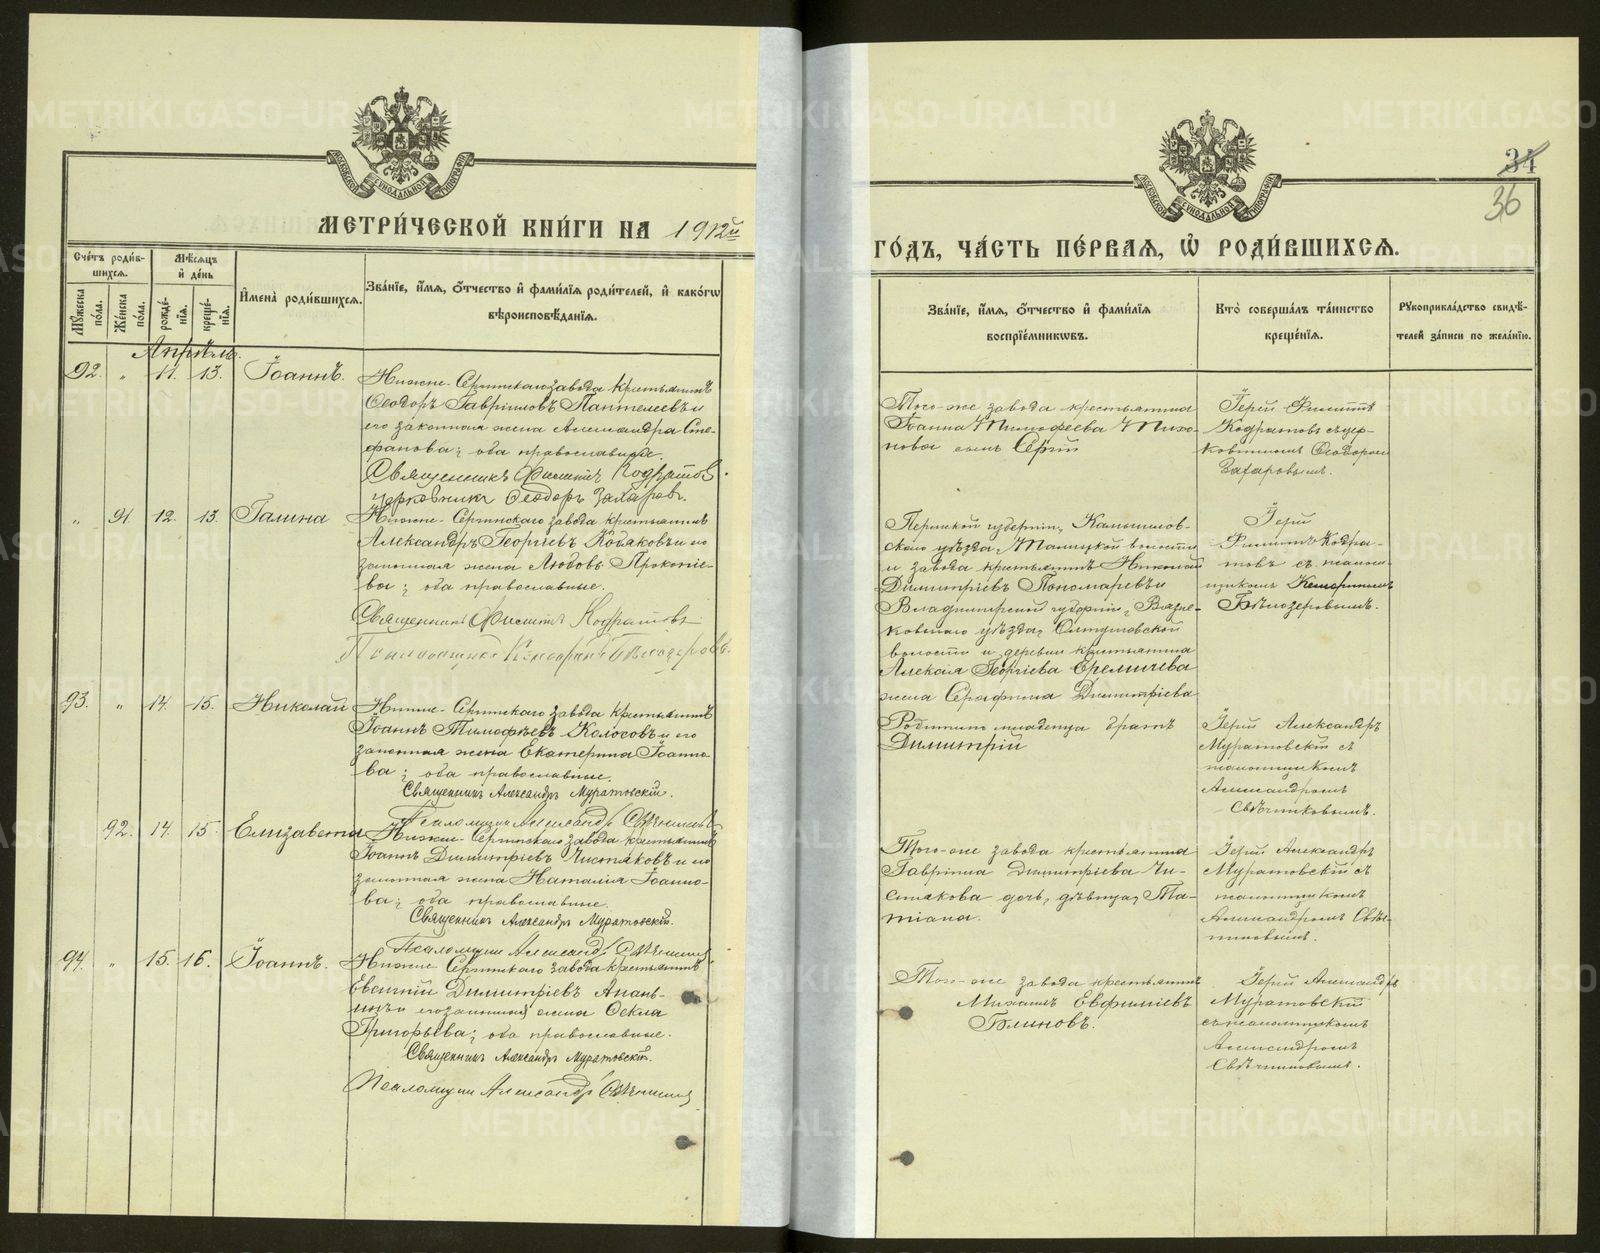 МЕТРИ́ЧЕСКОЙ КНИ́ГИ НА 1912й
Сче́тъ роди́в-
шихсѧ.
Мѣ́сяцъ
и҆ де́нь
Мꙋ́жеска
по́ла.
Же́нска
по́ла.
рожде́-
нїѧ.
креще́-
нїѧ.
И҆мена̀ роди́вшихсѧ.
Зва́нїе, и҆́мѧ, ѻ҆́тчество и҆ фами́лїѧ роди́телей, и҆ како́гѡ
вѣроисповѣ́данїѧ.
Апрѣль.
92. " 11. 13. Іоаннъ.
Нижне-Сергинскаго завода крестьянинъ
Ѳеодоръ Гавріиловъ Пантелеевъ и
его законная жена Александра Сте-
фанова; оба православные.
Священникъ Филиппъ Кодратовъ.
Церковникъ Ѳеодоръ Захаровъ.
" 91 12. 13. Галина
Нижне-Сергинскаго завода крестьянинъ
Александръ Георгіевъ Кобяковъ и его
законная жена Любовь Прокопіе-
ва; оба православные.
Священникъ Филиппъ Кодратовъ
Псаломщикъ Бѣлозеровъ.
93. " 14. 15. Николай
Нижне-Сергинскаго завода крестьянинъ
Іоаннъ Тимоѳеевъ Колосовъ и его
законная жена Екатерина Іоанно-
ва; оба православные.
Священникъ Александръ Муратовскій.
Псаломщик Александръ Свѣчниковъ
92. 14. 15. Елизавета
Нижне-Сергинскаго завода крестьянинъ
Іоаннъ Димитріевъ Чистяковъ и его
законная жена Наталія Іоанно-
ва; оба православные.
Священникъ Александръ Муратовскій.
Псаломщик Александръ Свѣчниковъ
94. " 15. 16. Іоаннъ.
Нижне-Сергинскаго завода крестьянинъ
Евгеній Димитріевъ Анань-
инъ и его законная жена Ѳекла
Григорьева; оба православные.
Священникъ Александръ Муратовскій.
Псаломщик Александръ Свѣчниковъ
34
36
ГО́ДЪ, ЧА́СТЬ ПЕ́РВАѦ, Ѡ҆ РОДИ́ВШИХСѦ.
Зва́нїе, и҆́мѧ, ѻ҆́тчество и҆ фами́лїѧ
воспрїе́мникѡвъ.
Кто̀ соверша́лъ та́инство
креще́нїѧ.
Рꙋкоприкла́дство свидѣ́-
телей за́писи по жела́нїю.
Того-же завода крестьянина
Іоанна Тимофеева Тихо-
нова сынъ Сергій
Іерей Филиппъ
Кодратовъ съ цер-
ковникомъ Ѳеодоромъ
Захаровымъ.
Пермской губерніи, Камышлов-
скаго уѣзда, Талицкой волости
и завода крестьянинъ Николай
Димитріевъ Пономаревъ и
Владимирской губерніи, Вязни-
ковскаго уѣзда,
волости и деревни крестьянина
Алексія Георгіева Еремичева
жена Серафима Димитріева
Іерей
Филиппъ Кодра-
товъ съ псалом-
щикомъ
Бѣлозеровымъ.
Родителя младенца братъ
Димитрій
Іерей Александръ
Муратовскій съ
псаломщикомъ
Александромъ
Свѣчниковымъ.
Того-же завода крестьянина
Гавріила Димитріева Чи-
стякова дочь, дѣвица, Та-
тіана.
Іерей Александръ
Муратовскій съ
псаломщикомъ
Александромъ Свѣч-
никовымъ.
Того-же завода крестьянинъ
Михаилъ Евфиміевъ
Блиновъ.
Іерей Александръ
Муратовскій
съ псаломщикомъ
Александромъ
Свѣчниковымъ.
METRIKI.GASO-URAL.RU